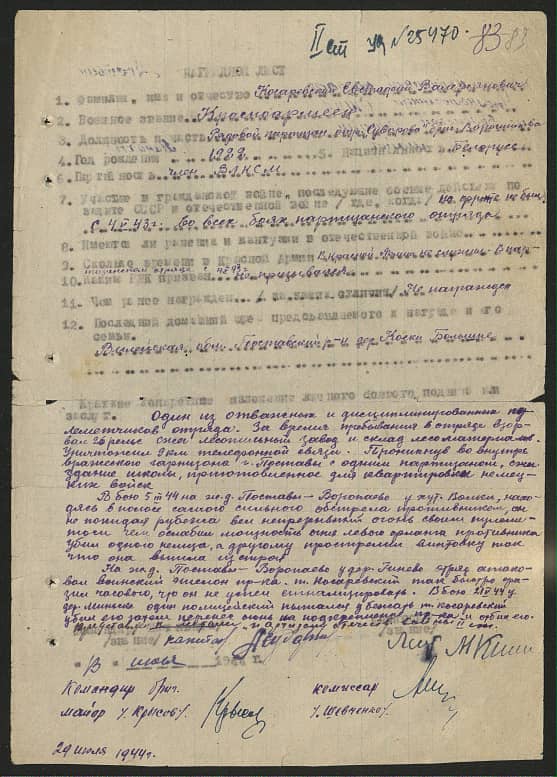 II ст УД №25470. 83 83
НАГРАДНОЙ ЛИСТ
1. Фамилия, имя и отчество Косаревский
2. Военное звание Красноармеец
3. Должность и часть Рядовой партизан им. Суворова бриг. Ворошилова
4. Год рождения 1922 5. Национальность Белорус
6. Партийность член ВЛКСМ
7. Участие в гражданской войне, последующие боевые действия по
защите СССР и отечественной войне /где, когда/ на фронте не был,
с 4 VI 43г. Во всех боях партизанского отряда
8. Имеет ли ранения и контузии в отечественной войне
9. Сколько времени в Красной Армии В Красной Армии не служил. В пар-
тизанском отряде с VI 43г.
10. Каким РВК призван Не призывался
11. Чем ранее награжден /за какие отличия/ Не награждался
12. Последний домашний адрес представляемого к награде и его
семьи.
Вилейская обл. Поставский р-н дер. Коски Большие
Краткое конкретное изложение личного боевого подвига или
заслуг. Один из отважных и дисциплинированных пу-
леметчиков отряда. За время пребывания в отряде взор-
вал 26 рельс сжег лесопильный завод и склад лесоматериалов.
Уничтожил 9 км телефонной связи. Проникнув во внутрь
вражеского гарнизона г. Поставы с одним партизаном, сжег
здание школы, приготовленное для квартировки немец-
ких войск
В бою 5 III 44 на ж.д. Поставы - Воропаево у хут. Волки, нахо-
дясь в полосе самого сильного обстрела противником, он
не покидая рубежа вел непрерывный огонь своим пулеме-
том чем ослабил мощность огня левого фланга противника
убил одного немца, а другому прострелил винтовку так
что она вышла из строя.
На ж.д. Поставы - Воропаево у дер. Гинево отряд атако-
вал воинский эшелон пр-ка. т. Косаревский так быстро сра-
зил часового, что он не успел сигнализировать. В бою 21 IV 44 у
дер. Миньки один полицейский пытался убежать т. Косаревский
убил его затем перенес огонь на подкрепления пр-ка и отбил его.
/звание/ капитан /звание/
"13" июля 1944 г.
Командир бриг. комиссар
майор /. Крысов/. /. Шевченко/.
29 июля 1944г.